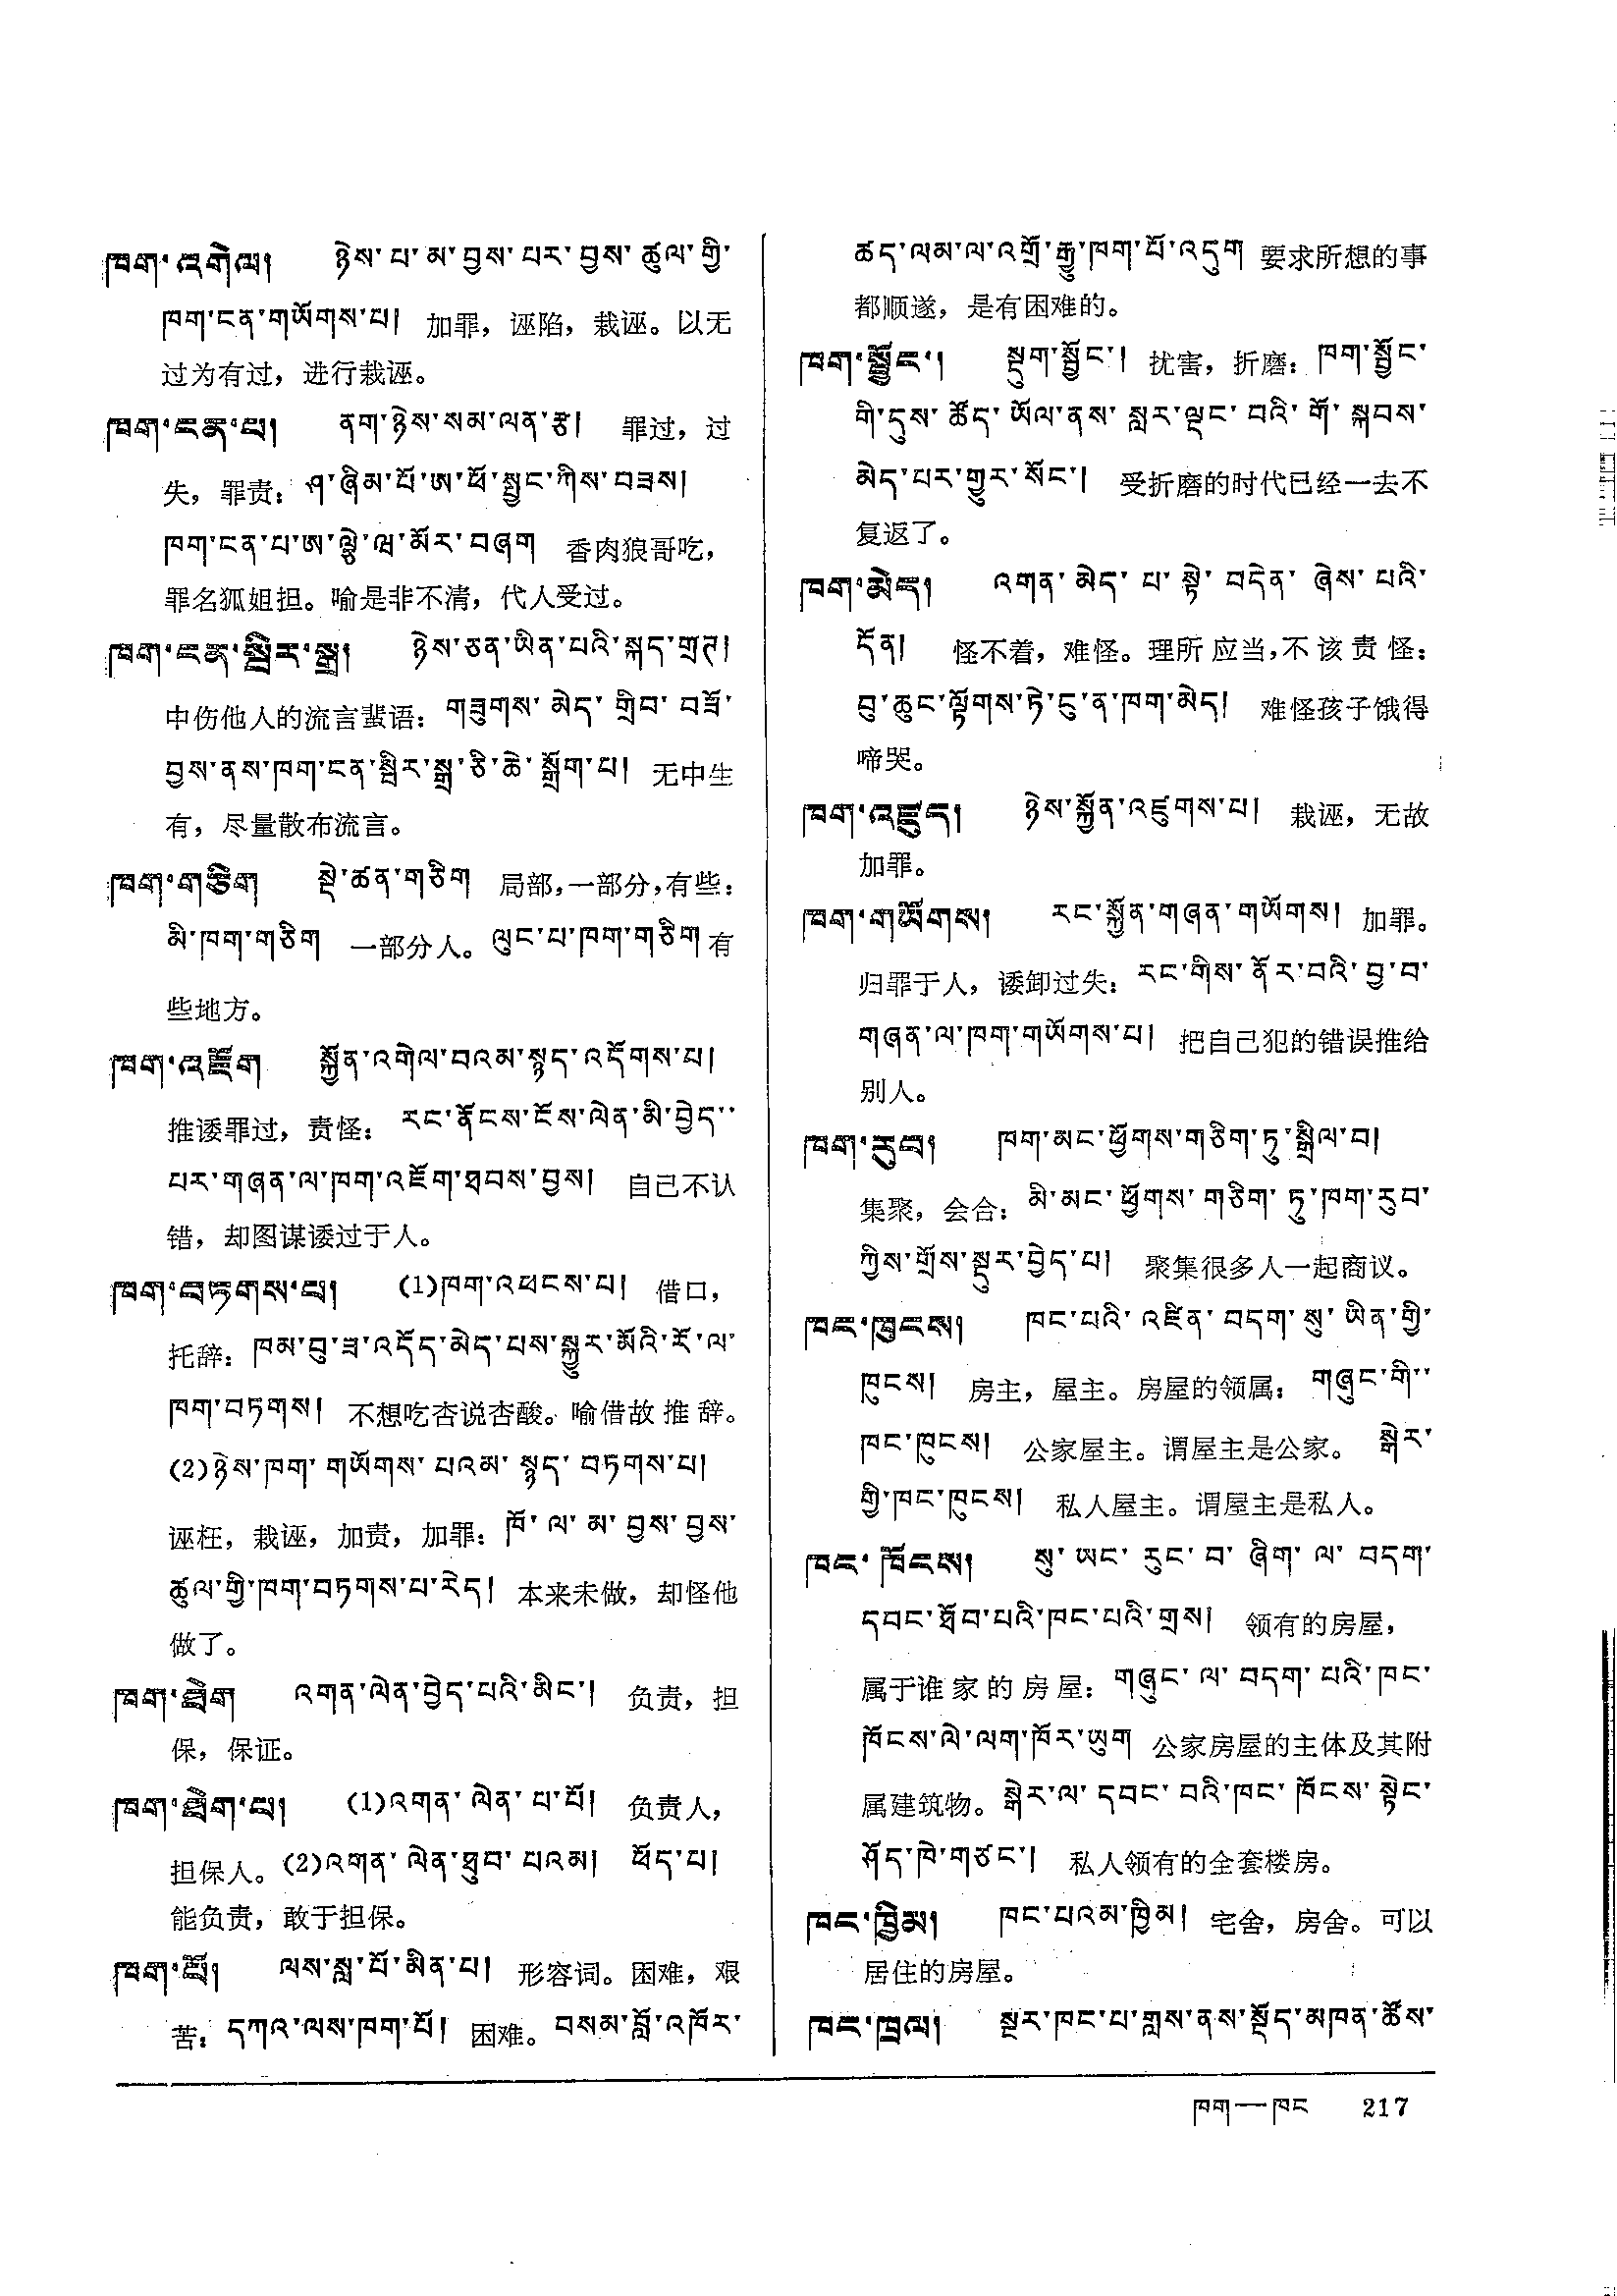 ཁག་འགེལ། ཉེས་པ་མ་བྱས་པར་བྱས་ཚུལ་གྱི་
ཁག་ངན་གཡོགས་པ། 加罪，诬陷，栽诬。以无
过为有过，进行栽诬。
ཁག་ངན་པ། ནག་ཉེས་སམ་ལན་རྩ། 罪过，过
失，罪责：ཤ་ཞིམ་པོ་ཨ་ཕོ་སྤྱང་ཀིས་བཟས།
ཁག་ངན་པ་ཨ་ལྕེ་ཝ་མོར་བཞག 香肉狼哥吃，
罪名狐姐担。喻是非不清，代人受过。
ཁག་ངན་སྤྱིར་སྒྲ། ཉེས་ཅན་ཡིན་པའི་སྐད་གྲག།
中伤他人的流言蜚语：གཟུགས་མེད་གྲིབ་བཟོ་
བྱས་ནས་ཁག་ངན་སྤྱིར་སྒྲ་ཅི་ཆེ་སྒྲོག་པ། 无中生
有，尽量散布流言。
ཁག་གཅིག སྡེ་ཚན་གཅིག 局部，一部分，有些：
མི་ཁག་གཅིག 一部分人。ལུང་པ་ཁག་གཅིག 有
些地方。
ཁག་འཇོག སྐྱོན་འགེལ་བའམ་སྙད་འདོགས་པ།
推诿罪过，责怪：རང་ནོངས་ངོས་ལེན་མི་བྱེད་་
པར་གཞན་ལ་ཁག་འཇོག་ཐབས་བྱས། 自己不认
错，却图谋诿过于人。
ཁག་བཏགས་པ། (1)ཁག་འཕངས་པ། 借口，
托辞：ཁམ་བུ་ཟ་འདོད་མེད་པས་སྐྱུར་མོའི་ངོ་ལ་
ཁག་བཏགས། 不想吃杏说杏酸。喻借故推辞。
(2)ཉེས་ཁག་གཡོགས་པའམ་སྙད་བཏགས་པ།
诬枉，栽诬，加责，加罪：ཁོ་ལ་མ་བྱས་བྱས་
ཚུལ་གྱི་ཁག་བཏགས་པ་རེད། 本来未做，却怪他
做了。
ཁག་ཐེག འགན་ལེན་བྱེད་པའི་མིང་། 负责，担
保，保证。
ཁག་ཐེག་པ། (1)འགན་ལེན་པ་པོ། 负责人，
担保人。(2)འགན་ལེན་ཐུབ་པའམ། ཕོད་པ།
能负责，敢于担保。
ཁག་པོ། ལས་སླ་པོ་མིན་པ། 形容词。困难，艰
苦：དཀའ་ལས་ཁག་པོ། 困难。བསམ་བློ་འཁོར་
ཚད་ལམ་ལ་འགྲོ་རྒྱུ་ཁག་པོ་འདུག 要求所想的事
都顺遂，是有困难的。
ཁག་སྦྱོང་། སྡུག་སྦྱོང་། 扰害，折磨：ཁག་སྦྱོང་
གི་དུས་ཚོད་ཡོལ་ནས་སླར་ལྡང་བའི་གོ་སྐབས་
མེད་པར་གྱུར་སོང་། 受折磨的时代已经一去不
复返了。
ཁག་མེད། འགན་མེད་པ་སྟེ་བདེན་ཞེས་པའི་
དོན། 怪不着，难怪。理所应当，不该责怪：
བུ་ཆུང་ལྟོགས་ཏེ་ངུ་ན་ཁག་མེད། 难怪孩子饿得
啼哭。
ཁག་འཛུད། ཉེས་སྐྱོན་འཛུགས་པ། 栽诬，无故
加罪。
ཁག་གཡོགས། རང་སྐྱོན་གཞན་གཡོགས། 加罪。
归罪于人，诿卸过失：རང་གིས་ནོར་བའི་བྱ་བ་
གཞན་ལ་ཁག་གཡོགས་པ། 把自己犯的错误推给
别人。
ཁག་རུབ། ཁག་མང་ཕྱོགས་གཅིག་ཏུ་སྒྲིལ་བ།
集聚，会合：མི་མང་ཕྱོགས་གཅིག་ཏུ་ཁག་རུབ་
ཀྱིས་གྲོས་སྡུར་བྱེད་པ། 聚集很多人一起商议。
ཁང་ཁུངས། ཁང་པའི་འཛིན་བདག་སུ་ཡིན་གྱི་
ཁུངས། 房主，屋主。房屋的领属：གཞུང་གི་་
ཁང་ཁུངས། 公家屋主。谓屋主是公家。 སྒེར་
གྱི་ཁང་ཁུངས། 私人屋主。谓屋主是私人。
ཁང་ཁོངས། སུ་ཡང་རུང་བ་ཞིག་ལ་བདག་
དབང་ཐོབ་པའི་ཁང་པའི་གྲས། 领有的房屋，
属于谁家的房屋：གཞུང་ལ་བདག་པའི་ཁང་
ཁོངས་ལེ་ལག་ཁོར་ཡུག 公家房屋的主体及其附
属建筑物。སྒེར་ལ་དབང་བའི་ཁང་ཁོངས་སྟེང་
ཤོད་ཁེ་གཙང་། 私人领有的全套楼房。
ཁང་ཁྱིམ། ཁང་པའམ་ཁྱིམ། 宅舍，房舍。可以
居住的房屋。
ཁང་ཁྲལ། སྔར་ཁང་པ་གླས་ནས་སྡོད་མཁན་ཚོས་
ཁག—ཁང 217